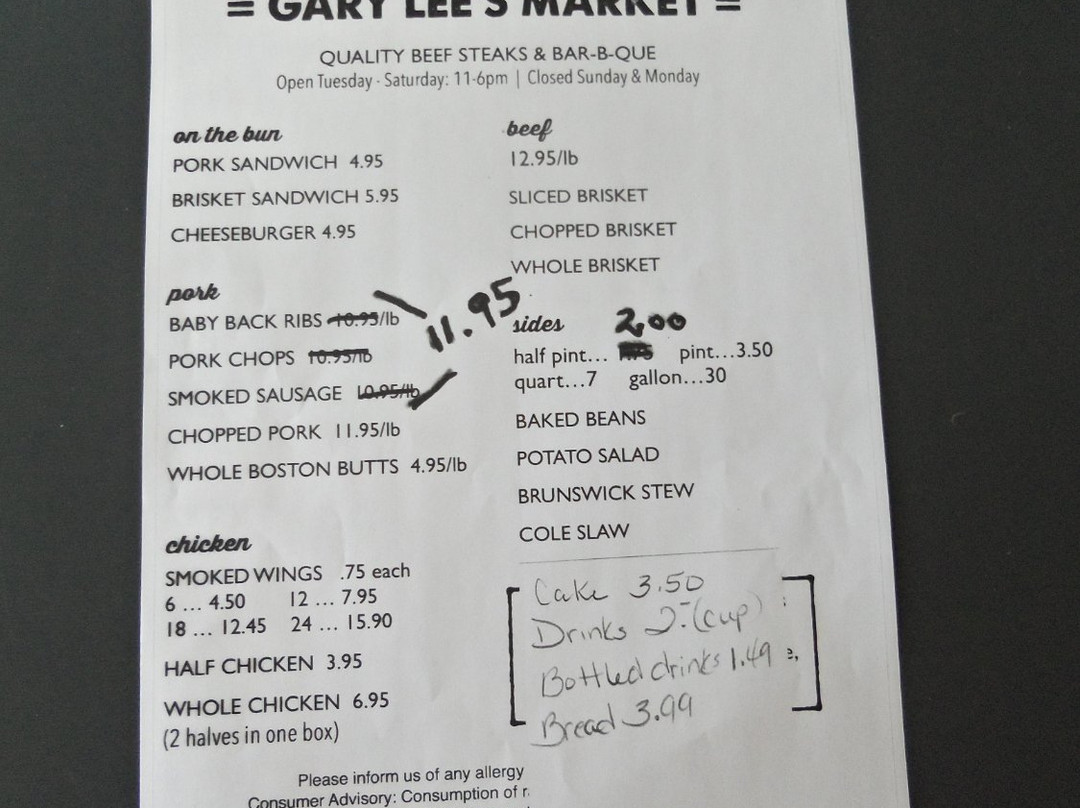 = GARY LEE'S MARKET =
QUALITY BEEF STEAKS & BAR-B-QUE
Open Tuesday - Saturday: 11-6pm | Closed Sunday & Monday
on the bun
PORK SANDWICH 4.95
BRISKET SANDWICH 5.95
CHEESEBURGER 4.95
pork
BABY BACK RIBS 10.95/lb
PORK CHOPS 10.95/lb
SMOKED SAUSAGE 10.95/lb
11.95
CHOPPED PORK 11.95/lb
WHOLE BOSTON BUTTS 4.95/lb
chicken
SMOKED WINGS .75 each
6 ... 4.50 12 ... 7.95
18 ... 12.45 24 ... 15.90
HALF CHICKEN 3.95
WHOLE CHICKEN 6.95
(2 halves in one box)
beef
12.95/lb
SLICED BRISKET
CHOPPED BRISKET
WHOLE BRISKET
sides 2.00
half pint... pint...3.50
quart...7 gallon...30
BAKED BEANS
POTATO SALAD
BRUNSWICK STEW
COLE SLAW
Cake 3.50
Drinks 2.- (cup)
Bottled drinks 1.49
Bread 3.99
Please inform us of any allergy
Consumer Advisory: Consumption of